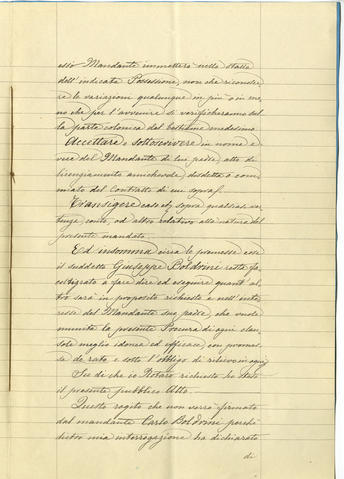 esso Mandante immetterà nella stalla
dell'indicata Possessione, non che riconosce
re le variazioni qualunque in più o in me
no che per l'avvenire si verificheranno sul
la parte colonica del bestiame medesimo
Accettare e sottoscrivere in nome e
vece del Mandante di lui padre, atto di
licenziamento amichevole disdetta o com
miato del Contratto di cui sopra.
Transigere caso
conto, od altro relativo alla natura del
presente mandato.
Ed insomma circa le premesse cose
il suddetto Giuseppe Boldrini resta fa
coltizzato a fare dire ed eseguire quant'al
tro sarà in proposito richiesto e nell'inte
resse del Mandante suo padre, che vuole
munita la presente Procura di ogni clau
sola meglio idonea ed efficace con promes
sa de rato e sotto l'obbligo di rilievo in ogni
Su di che io Notaro richiesto ho steso
il presente pubblico Atto.
Questo rogito che non verrà firmato
dal mandante Carlo Boldrini perchè
dietro mia interrogazione ha dichiarato
di